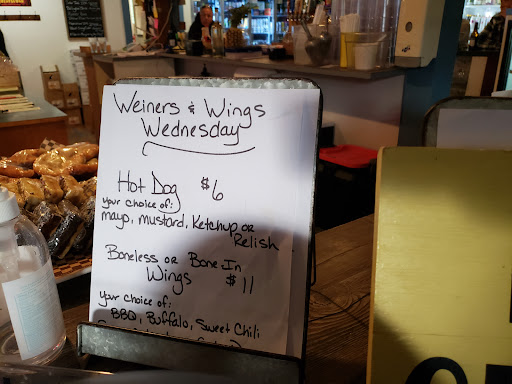 Weiners & Wings
Wednesday
Hot Dog $6
Your choice of:
mayo, mustard, Ketchup or
Relish
Boneless or Bone-In
Wings $11
Your Choice of:
BBQ, Buffalo, Sweet Chili